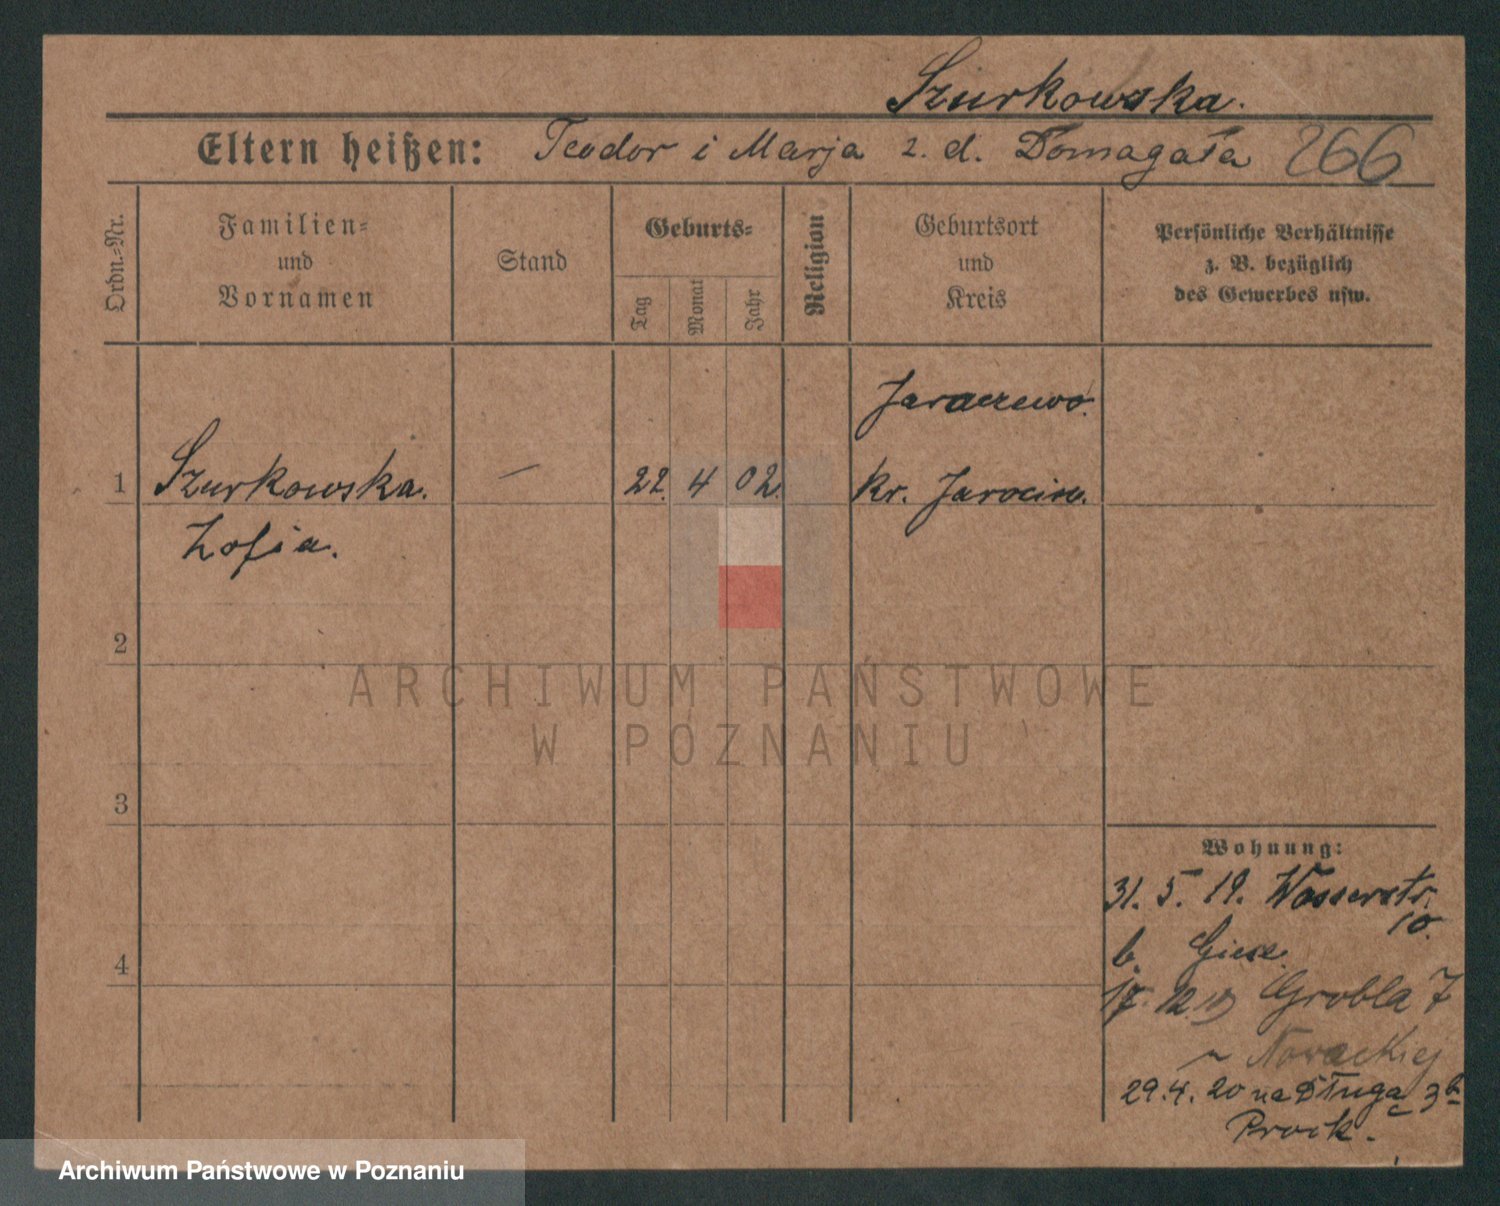 Szurkowska.
Eltern heißen: Teodor i Marja z. d. Domagała 266
Ordn.=Nr.
Familien=
und
Vornamen
Stand
Geburts=
Tag
Monat
Jahr
Religion
Geburtsort
und
Kreis
Persönliche Verhältnisse
z. B. bezüglich
des Gewerbes usw.
Jaraczewo.
1 Szurkowska. — 22. 4 02. kr. Jarocin.
Zofia.
2
ARCHIWUM PAŃSTWOWE
W POZNANIU
3
Wohnung:
31. 5. 19. Wasserstr.
10.
b. Giese.
4
17. 12. 19 Grobla 7
Nowackiej
29.4. 20 na Długa 3
Prock.
Archiwum Państwowe w Poznaniu